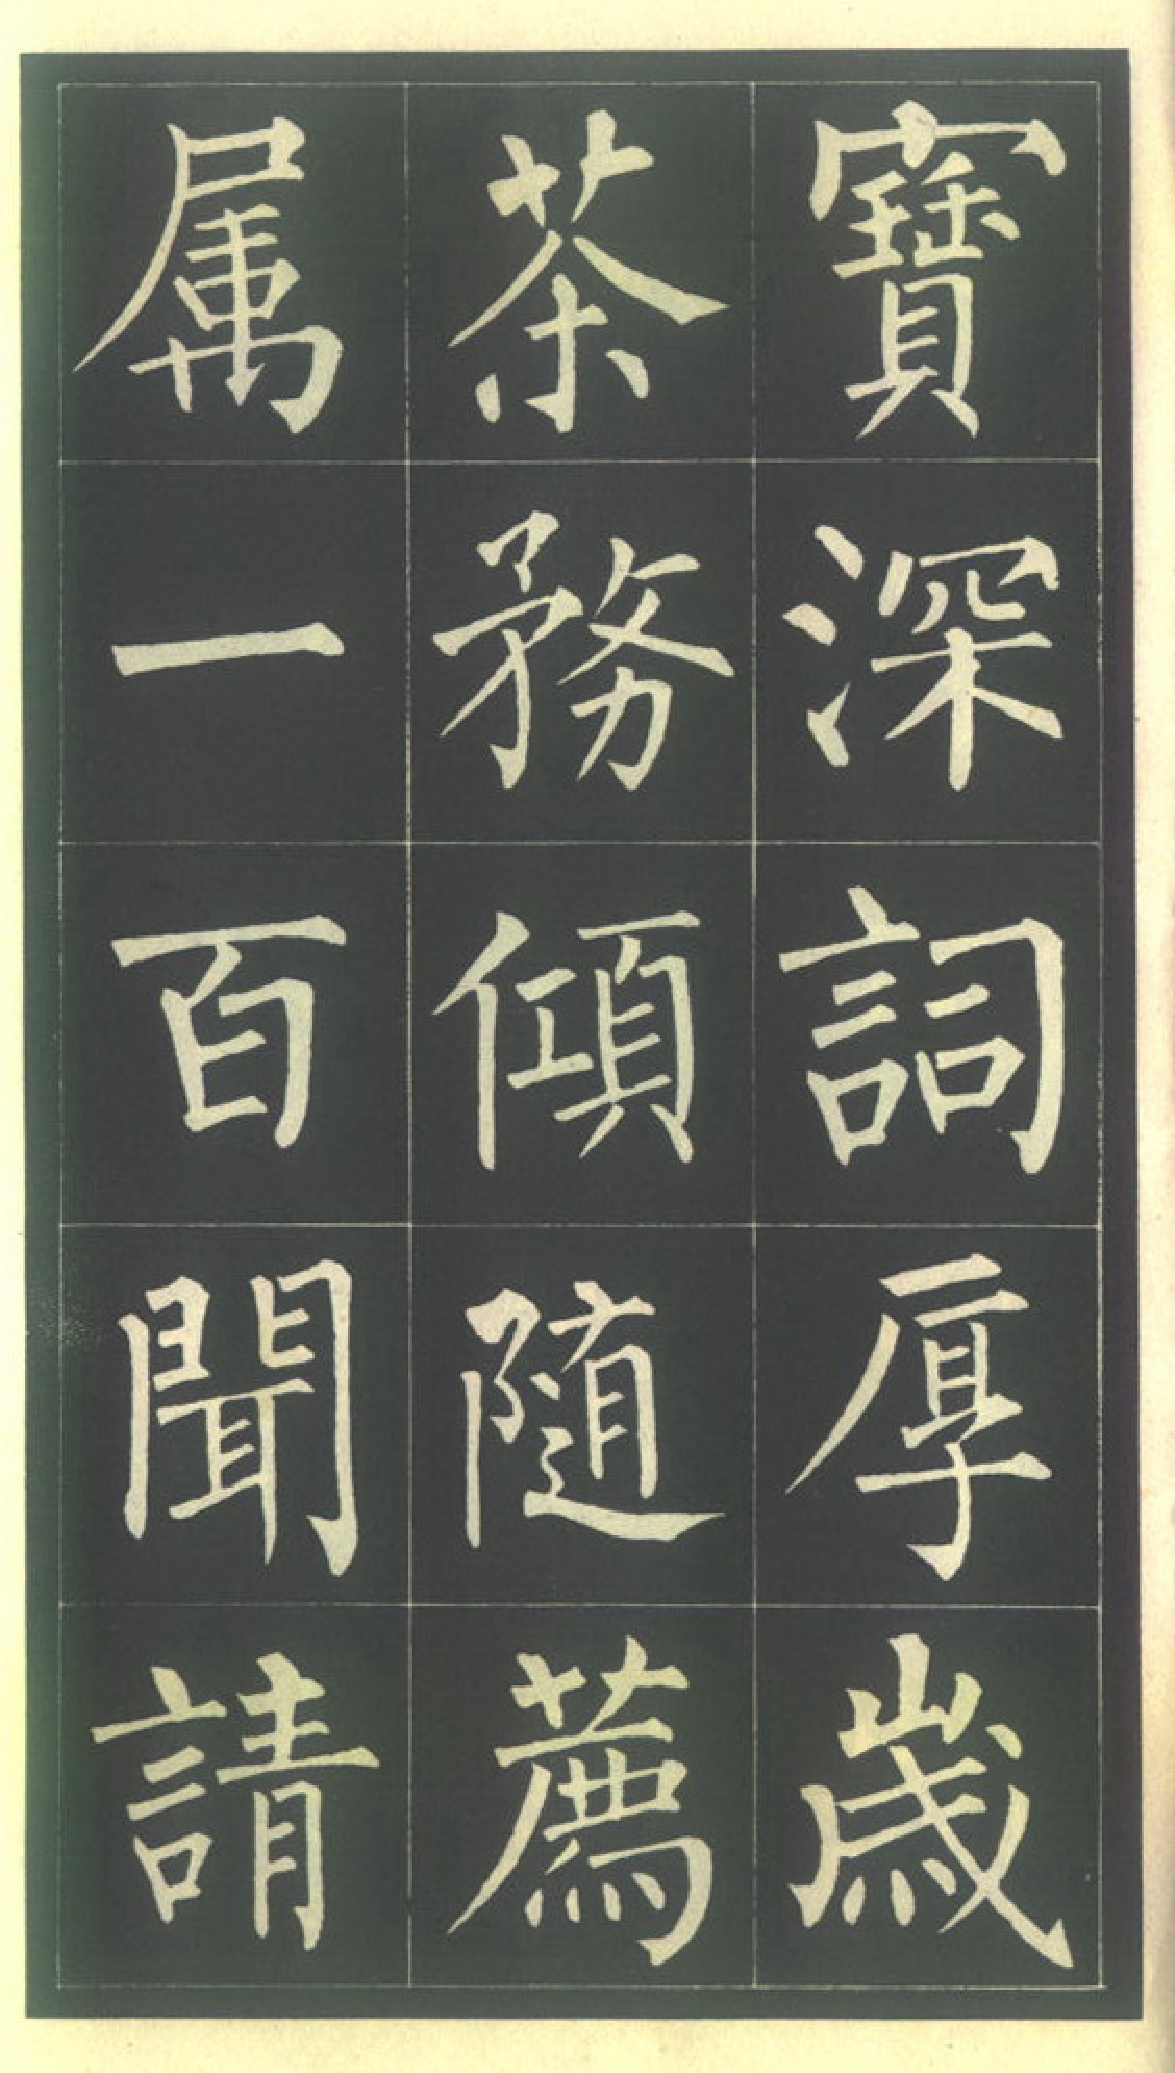 寶深詞厚歲
茶務傾随薦
属一百聞請